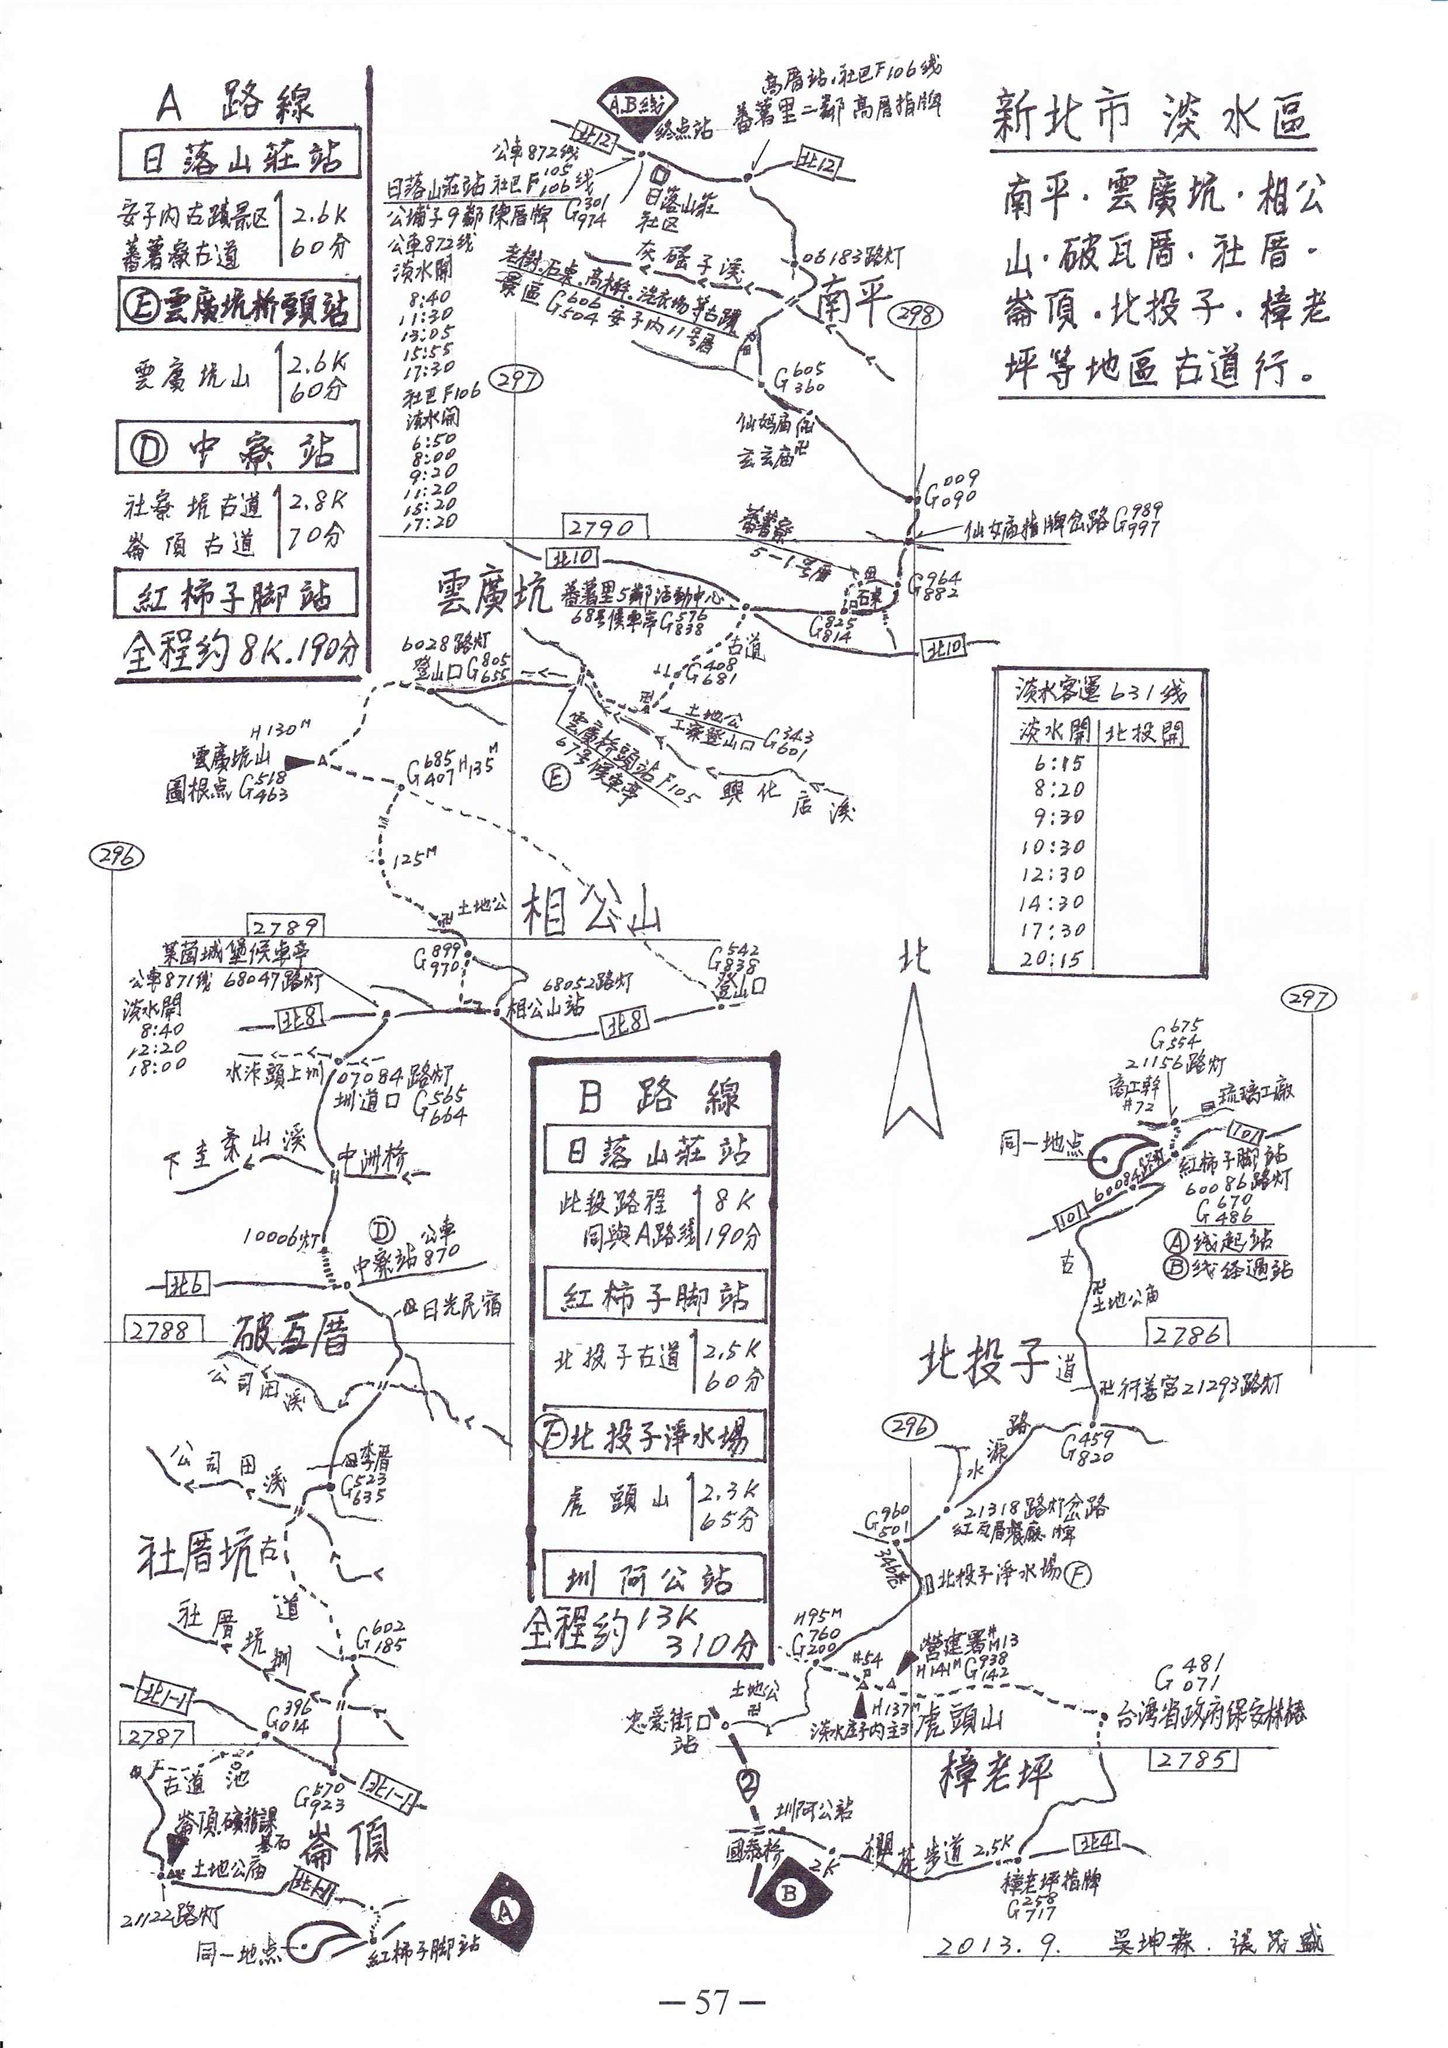 新北市 淡水區
南平．雲廣坑．相公
山．破瓦厝．社厝．
崙頂．北投子．樟老
坪等地區古道行。
A 路線
日落山莊站
安子內古蹟景区
蕃薯寮古道
2.6K
60分
E雲廣坑桥頭站
雲廣坑山
2.6K
60分
D 中寮站
社寮坑古道
崙頂古道
2.8K
70分
紅柿子脚站
全程約8K.190分
A.B线
終点站
高厝站.社巴F106线
蕃薯里二鄰高厝指牌
北12
北12
公車872线
日落山莊站社巴F105
106线
公埔子9鄰陳厝牌 G301
974
日落山莊
社区
公車872线
淡水開
8:40
11:30
13:05
15:55
17:30
社巴F106
淡水開
6:50
8:00
9:20
11:20
15:20
17:20
灰磘子溪
06183路灯
南平
老樹.石東.高梯.洗衣場等古蹟
景區 G606
504 安子內11号厝
298
297
G605
360
仙妈庙
玄玄庙卍
G009
090
仙女庙指牌岔路G989
997
2790
蕃薯寮
5-1号厝
北10
雲廣坑
蕃薯里5鄰活動中心
68号候車亭G576
838
石東
G964
882
G825
814
北10
古道
G408
681
6028路灯
登山口G805
655
土地公
工寮登山口 G343
601
雲廣桥頭站F105
67号候車亭
E
興化店溪
H130M
雲廣坑山
圖根点G518
463
G685
407 H135M
125M
296
土地公
相公山
2789
萊茵城堡候車亭
公車871线 68047路灯
淡水開
8:40
12:20
18:00
G899
970
68052路灯
相公山站
G542
838
登山口
北8
北8
水汴頭上圳
07084路灯
圳道口 G565
664
下圭柔山溪
中洲桥
10006灯
D
公車
中寮站870
北6
日光民宿
2788
破瓦厝
公司田溪
公司田溪
李厝
G523
635
社厝坑古道
社厝坑圳
G602
185
北1-1
G396
014
2787
古道
池
G570
923
北1-1
崙頂
崙頂.礦務課
基石
土地公庙
北1-1
21122路灯
同一地点
紅柿子脚站
A
淡水客運631线
淡水開 北投開
6:15
8:20
9:30
10:30
12:30
14:30
17:30
20:15
北
B 路線
日落山莊站
此段路程
同與A路线
8K
190分
紅柿子脚站
北投子古道
2.5K
60分
F北投子淨水場
虎頭山
2.3K
65分
圳阿公站
全程約13K
310分
297
G675
554
21156路灯
商工幹
#72
琉璃工廠
同一地点
101
紅柿子脚站
60084路灯
60086路灯
G670
486
101
A线起站
B线经過站
古
卍土地公庙
2786
北投子
道
卍行善宮21293路灯
296
G459
820
水源路
G960
501
21318路灯岔路
紅瓦厝餐廳牌
346巷
北投子淨水場F
H95M
G760
200
#54
營建署#
M13
H141M G938
142
H137M
淡水庄子內主3
虎頭山
G481
071
台湾省政府保安林樁
土地公
卍
忠爱街
站
2785
樟老坪
2
圳阿公站
國泰桥
2K
櫻花步道
2.5K
北4
樟老坪指牌
G258
717
B
2013.9. 吳坤霖．張茂盛
— 57 —